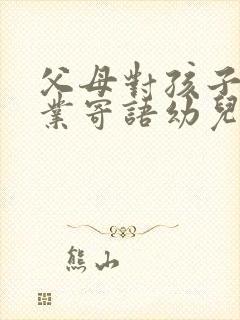 父母對孩子
業寄語幼兒
熊山